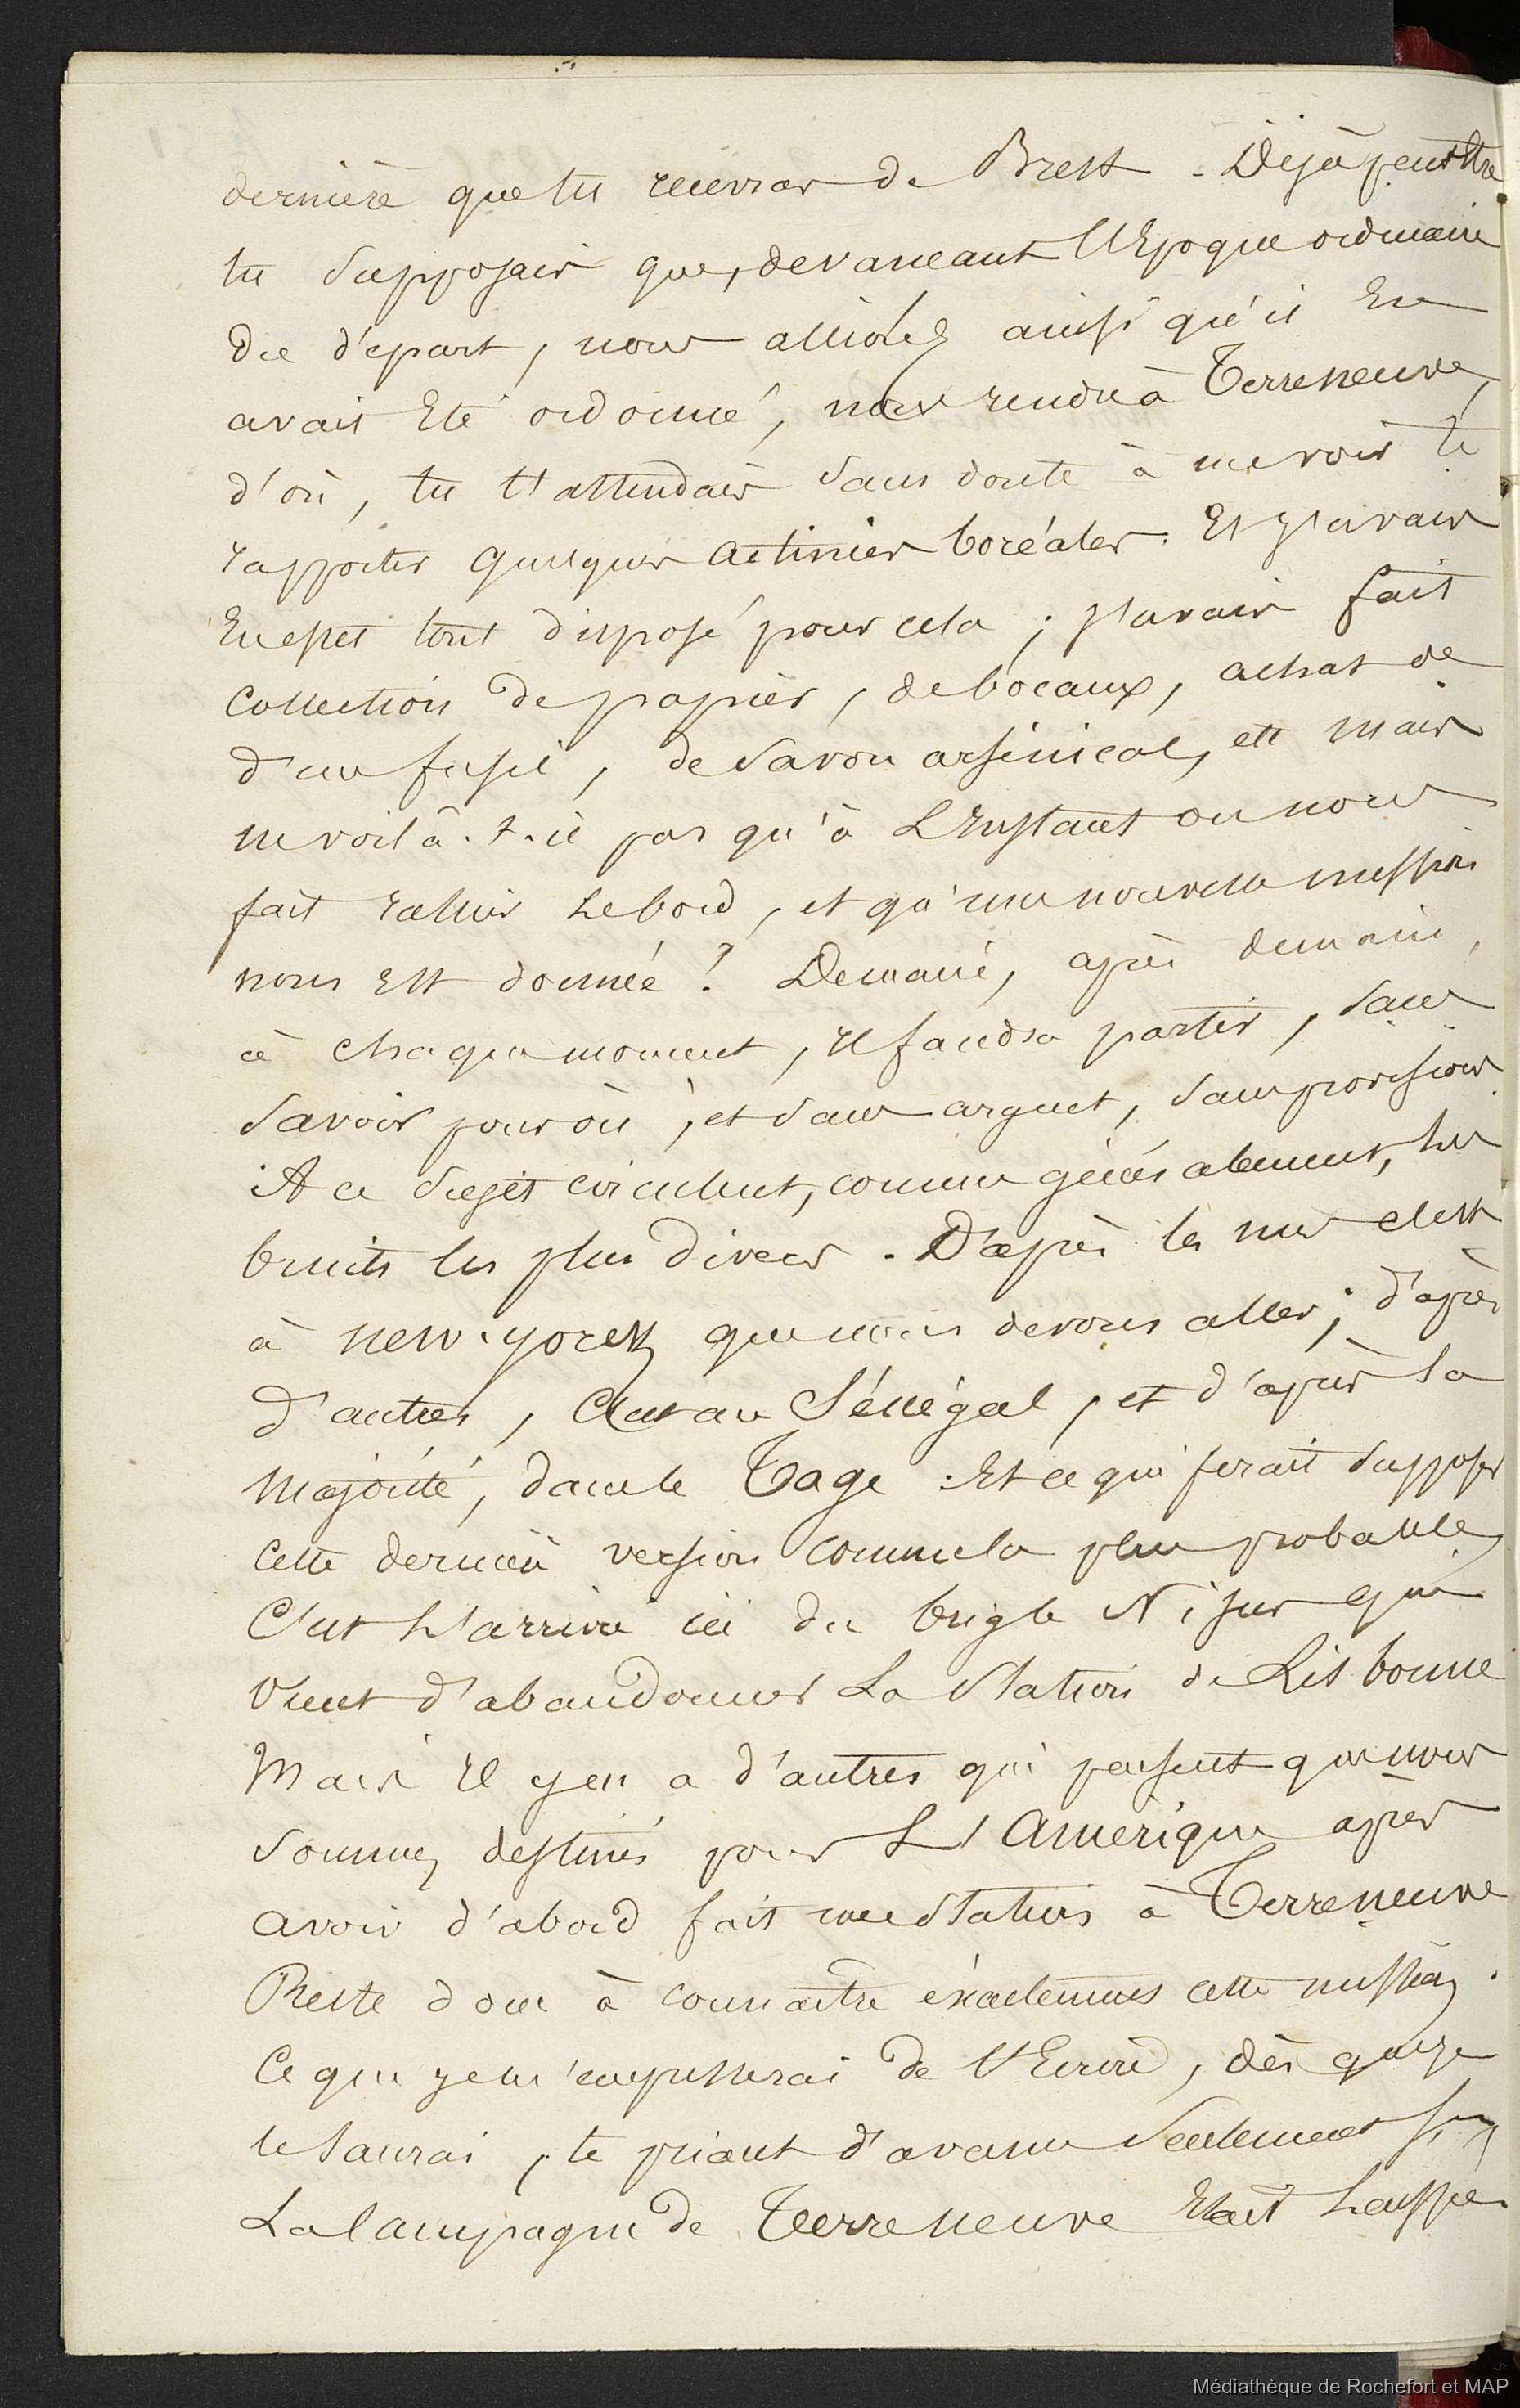 dernière que tu recevras de Brest. Déjà peut être
tu supposais que, devançant l'Epoque ordinaire
du départ, nous allions ainsi qu'il En
avait Eté ordonné, nous rendre à Terreneuve,
d'où, tu t'attendais sans doute à me voir te
rapporter quelques actinies boréales. Et j'avais
En effet tout disposé pour cela; j'avais fait
Collection de papier, de bocaux, achat de
d'un fusil, de savon arsénical, etc mais
ne voilà-t-il pas qu'à L'Instant on nous
fait rallier Le bord, et qu'une nouvelle mission
nous Est donnée? Demain, après demain,
à chaque moment, Il faudra partir, sans
savoir pour où, et sans argent, sans provisions
A ce sujet circulent, comme généralement, les
bruits les plus divers. D'après les uns c'est
à new-yorck que nous devons aller; d'après
d'autres, C'est au Sénégal, et d'après la
majorité, dans le Tage. Et ce qui ferait supposer
cette dernière version comme la plus probable,
C'est L'arrivée ici du brig le Nisus qui
vient d'abandonner La Station de Lisbonne
Mais Il y en a d'autres qui pensent que nous
sommes destinés pour L'Amérique après
avoir d'abord fait une station à Terreneuve
Reste donc à connaître éxactement cette mission.
Ce que je m'empresserai de t'Ecrire, dès que je
le saurai, te priant d'avance seulement si
La Campagne de Terreneuve Etait Laissée